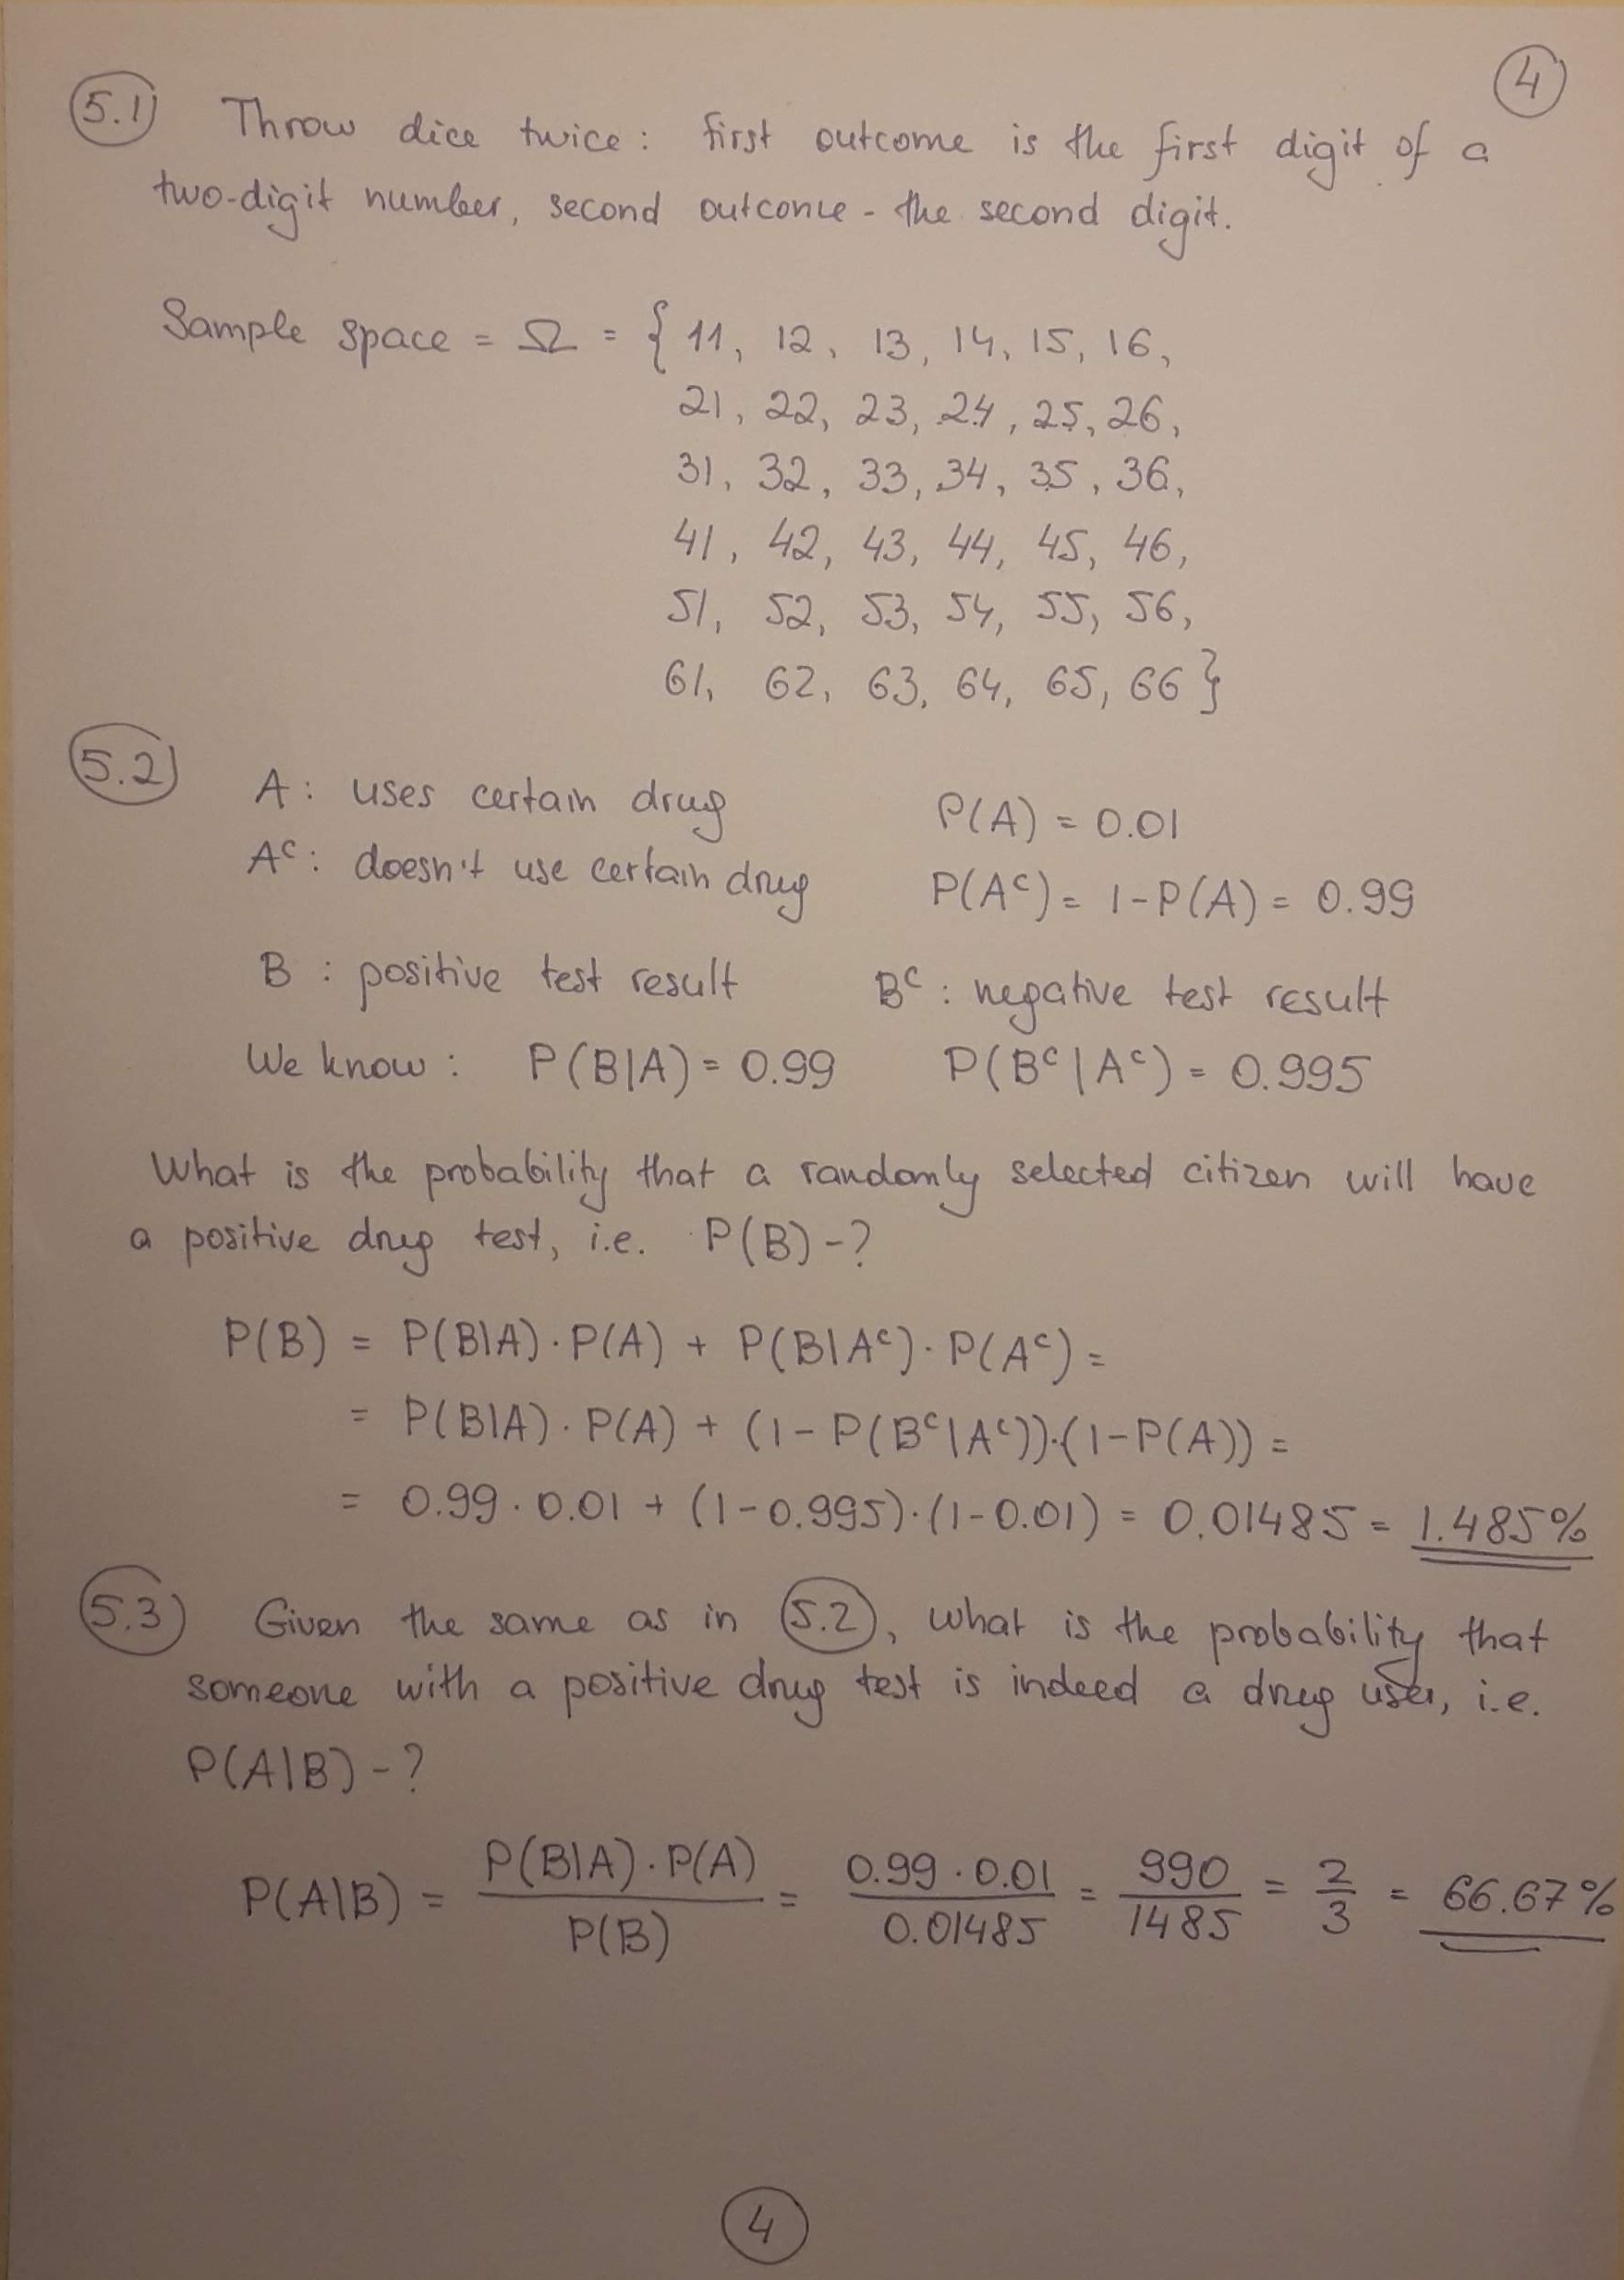 4
5.1 Throw dice twice: first outcome is the first digit of a
two-digit number, second outcome - the second digit.
Sample space = Ω = { 11, 12, 13, 14, 15, 16,
21, 22, 23, 24, 25, 26,
31, 32, 33, 34, 35, 36,
41, 42, 43, 44, 45, 46,
51, 52, 53, 54, 55, 56,
61, 62, 63, 64, 65, 66 }
5.2 A: uses certain drug P(A) = 0.01
Aᶜ: doesn't use certain drug P(Aᶜ) = 1-P(A) = 0.99
B : positive test result Bᶜ : negative test result
We know : P(B|A) = 0.99 P(Bᶜ|Aᶜ) = 0.995
What is the probability that a randomly selected citizen will have
a positive drug test, i.e. P(B) -?
P(B) = P(B|A) · P(A) + P(B|Aᶜ) · P(Aᶜ) =
= P(B|A) · P(A) + (1 - P(Bᶜ|Aᶜ)) · (1-P(A)) =
= 0.99 · 0.01 + (1-0.995) · (1-0.01) = 0.01485 = 1.485%
5.3 Given the same as in 5.2, what is the probability that
someone with a positive drug test is indeed a drug user, i.e.
P(A|B) -?
P(A|B) = P(B|A) · P(A) / P(B) = 0.99 · 0.01 / 0.01485 = 990 / 1485 = 2/3 = 66.67%
4